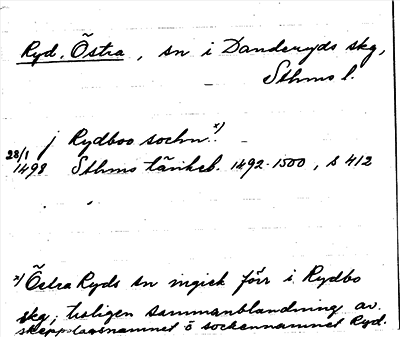 Ryd. Östra, sn i Danderyds skg,
Sthms l.
28/1 1498 j Rydboo sochn. x)
Sthms tänkeb. 1492-1500, s 412
x) Östra Ryds sn ingick förr i Rydbo
skg; troligen sammanblandning av
skeppslagsnamnet o sockennamnet Ryd.